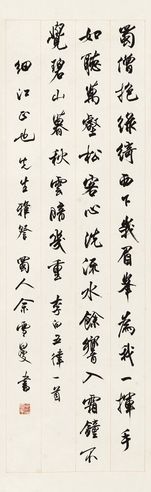 蜀僧抱綠綺西下峩眉峯為我一揮手
如聽萬壑松客心洗流水餘響入霜鐘不
覺碧山暮秋雲暗幾重 李白五律一首
細江正也先生雅鑒 蜀人余雪曼書